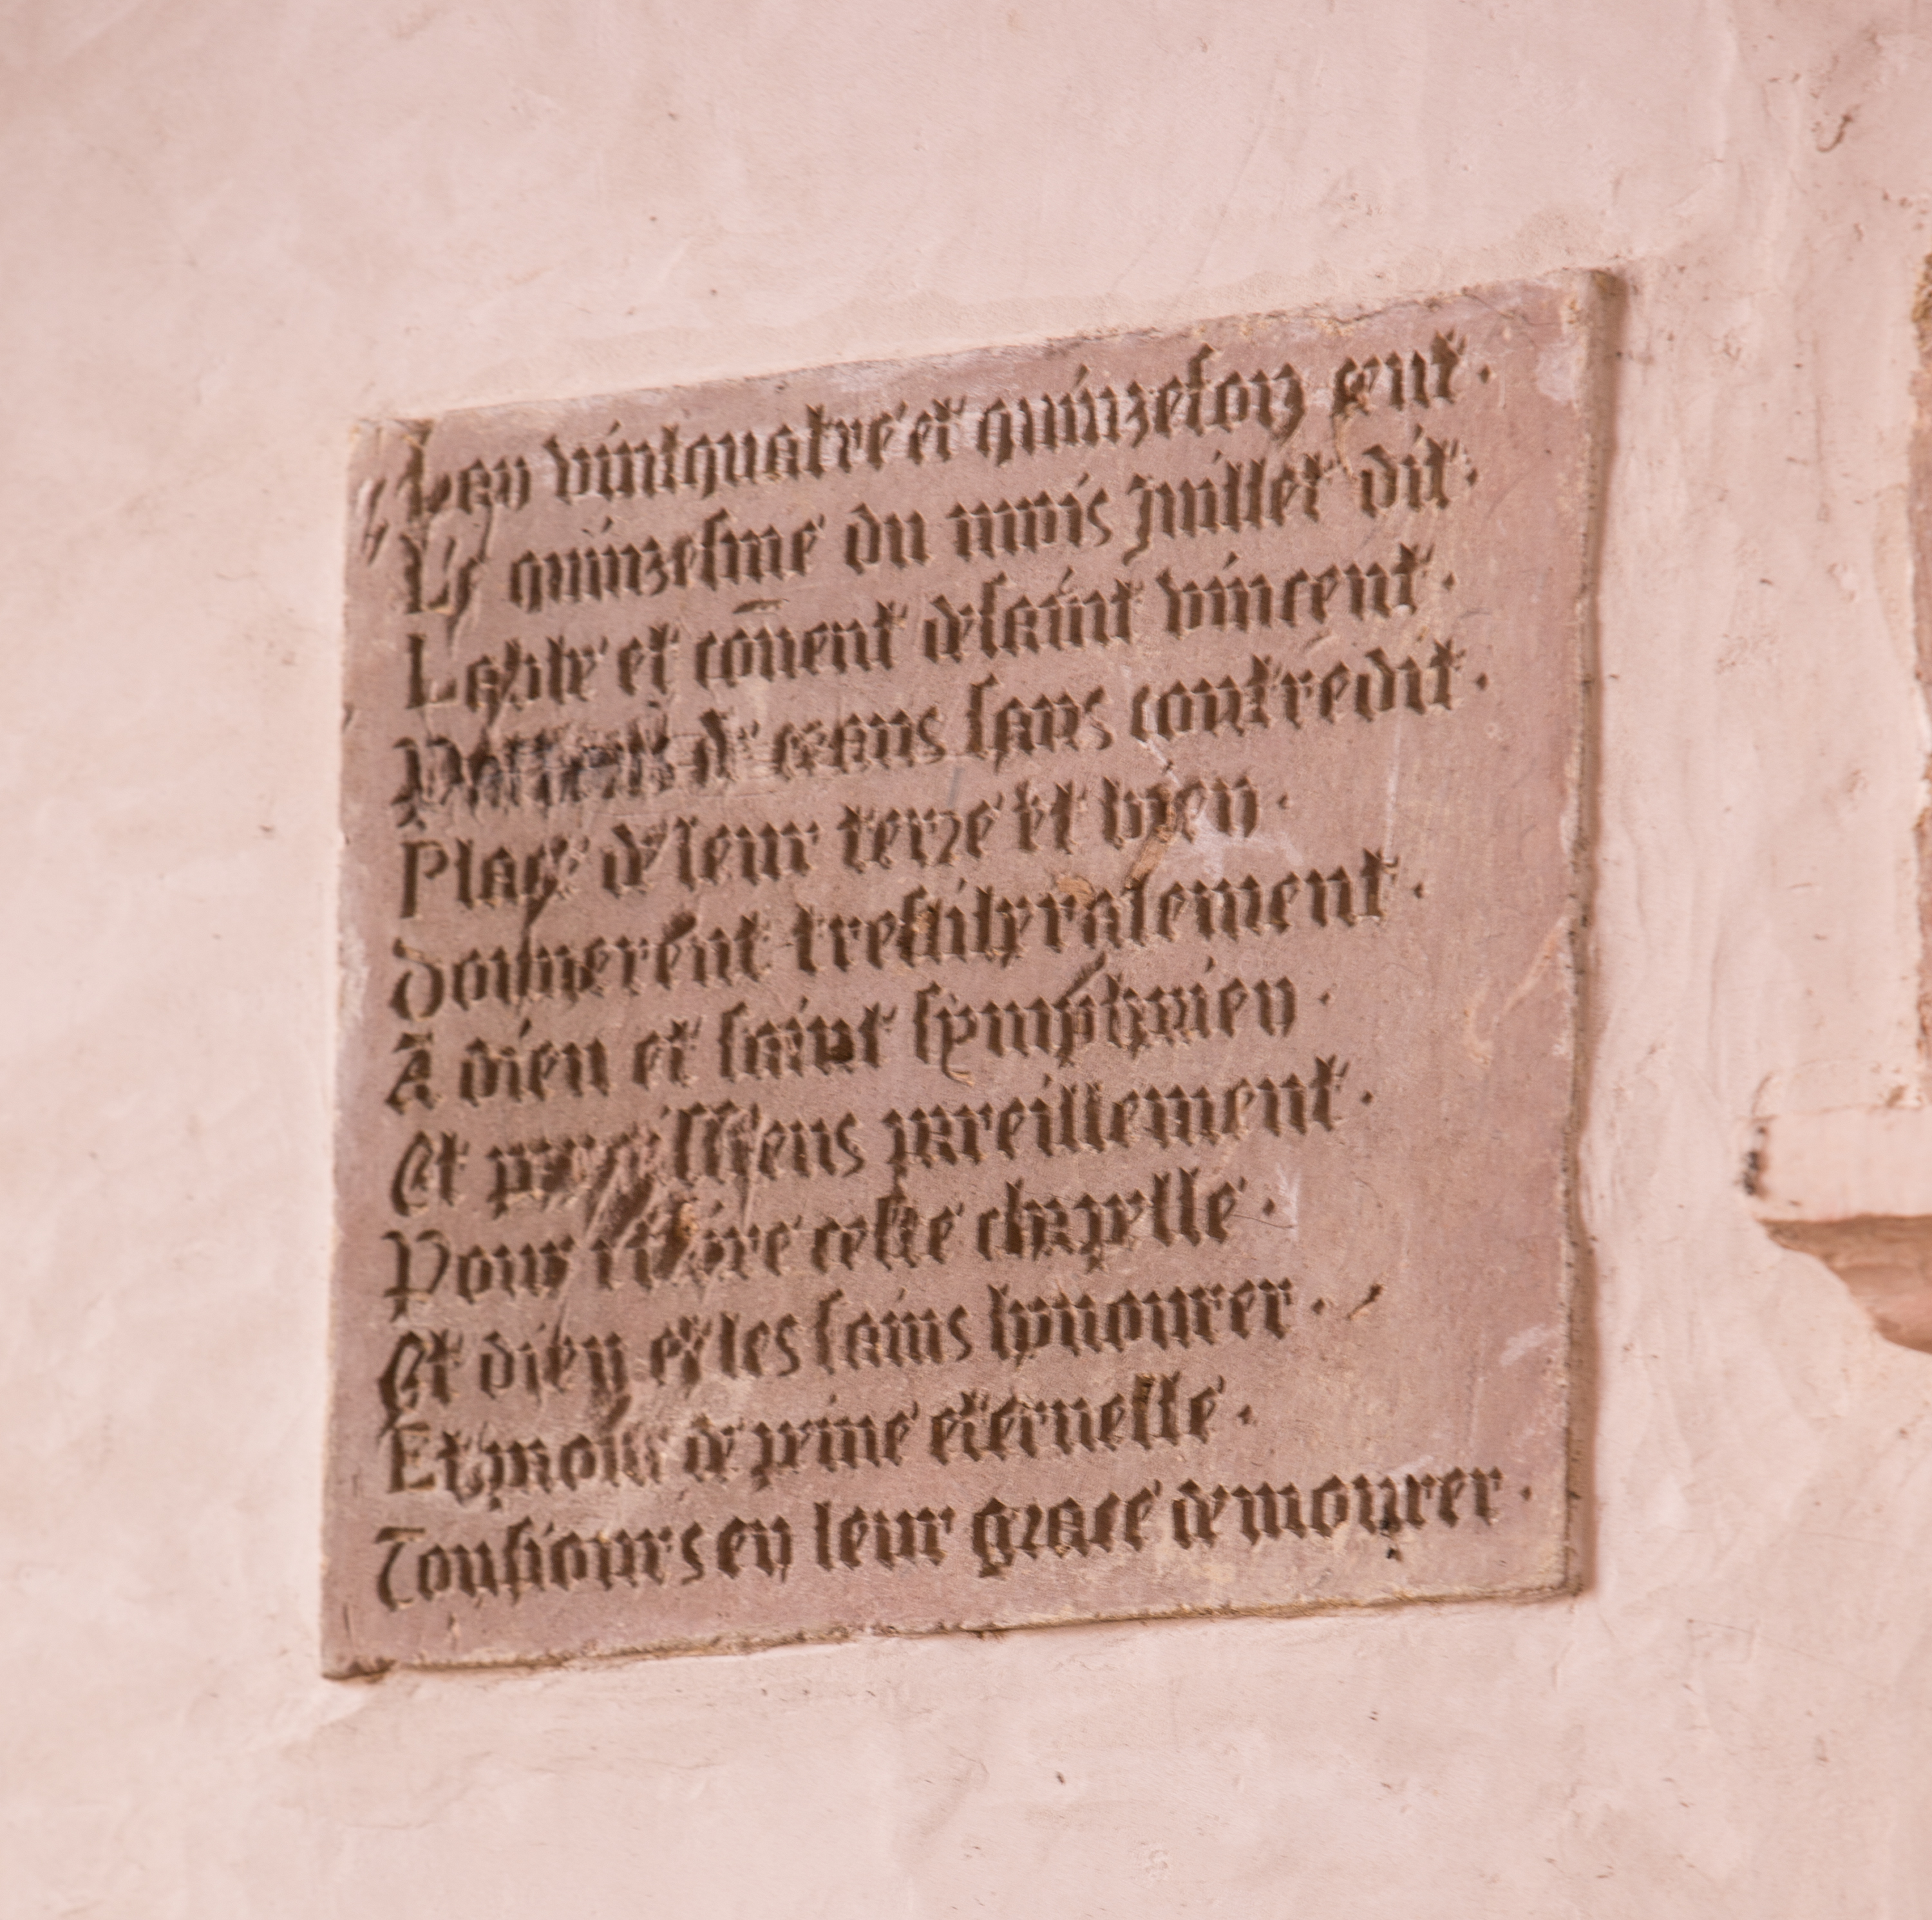 Lan vintquatre et quinzefoiz cent.
Le quinzesme du mois Juillet dit.
Labbe et cōuent de saint vincent.
de ceans sans contredit.
Place de leur terre et bien.
Donnerent tresliberalement.
A dieu et saint symphorien.
Et parroissiens pareillement.
Pour faire ceste chapelle.
Et dieu et les sains honnourer.
Et pour de peine eternelle.
Tousiours en leur grace demourer.